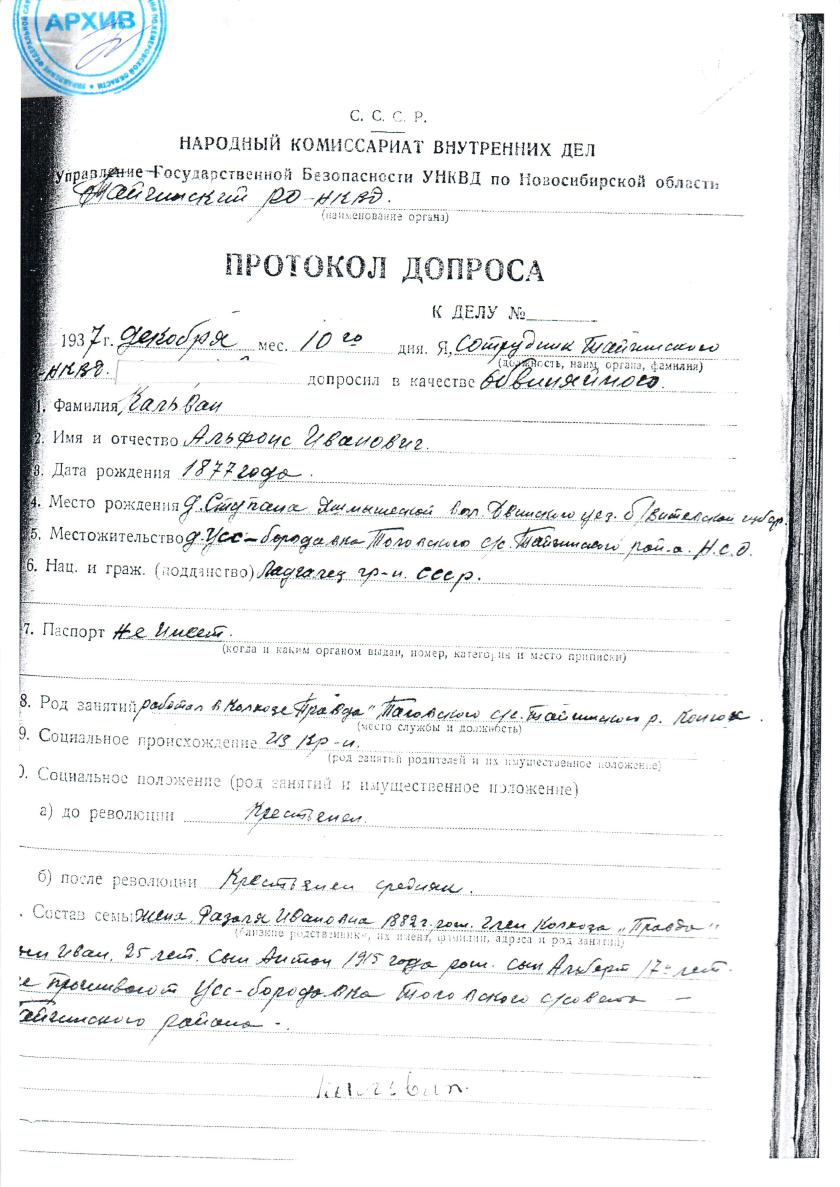 АРХИВ
С. С. С. Р.
НАРОДНЫЙ КОМИССАРИАТ ВНУТРЕННИХ ДЕЛ
Управление Государственной Безопасности УНКВД по Новосибирской области
Тайгинский РО-НКВД.
(наименование органа)
ПРОТОКОЛ ДОПРОСА
К ДЕЛУ №
1937 г. декабря мес. 10го дня. Я, Сотрудник Тайгинского
(должность, наим. органа, фамилия)
НКВД. допросил в качестве обвиняймого.
1. Фамилия Кальван
2. Имя и отчество Альфонс Иванович.
3. Дата рождения 1877 года.
4. Место рождения д. Ступана вол. Двинского уез. б/Витебской губер.
5. Местожительство д. Усс-бородавка Тоговского с/с. Тайгинского рай-а. Н.С.О.
6. Нац. и граж. (подданство) Ладгалец гр-н. СССР.
7. Паспорт не имеет.
(когда и каким органом выдан, номер, категория и место приписки)
8. Род занятий работал в колхозе "Правда" Таговского с/с. Тайгинского р. Конюх.
(место службы и должность)
9. Социальное происхождение из кр-н.
(род занятий родителей и их имущественное положение)
0. Социальное положение (род занятий и имущественное положение)
а) до революции Крестьянин.
б) после революции Крестьянин средняк.
. Состав семьи жена. Разаля Ивановна 1882 г. рож. Член колхоза „Правда"
(близкие родственники, их имена, фамилии, адреса и род занятий)
Иван. 25 лет. сын Антон 1915 года рож. сын Альберт 17 лет.
е проживают Усс-бородавка Тоговского с/совета —
Тайгинского района -.
Кальван.